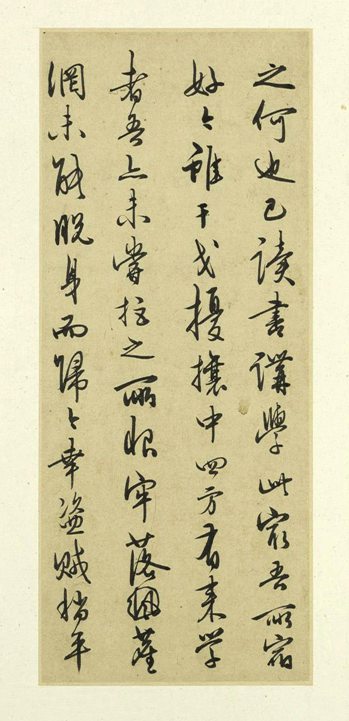 之何也已讀書講學此最吾所宿
好今雖干戈擾攘中四方有来学
者吾亦未嘗拒之所恨牢落塵
網未能脫身而歸今幸盜賊稍平